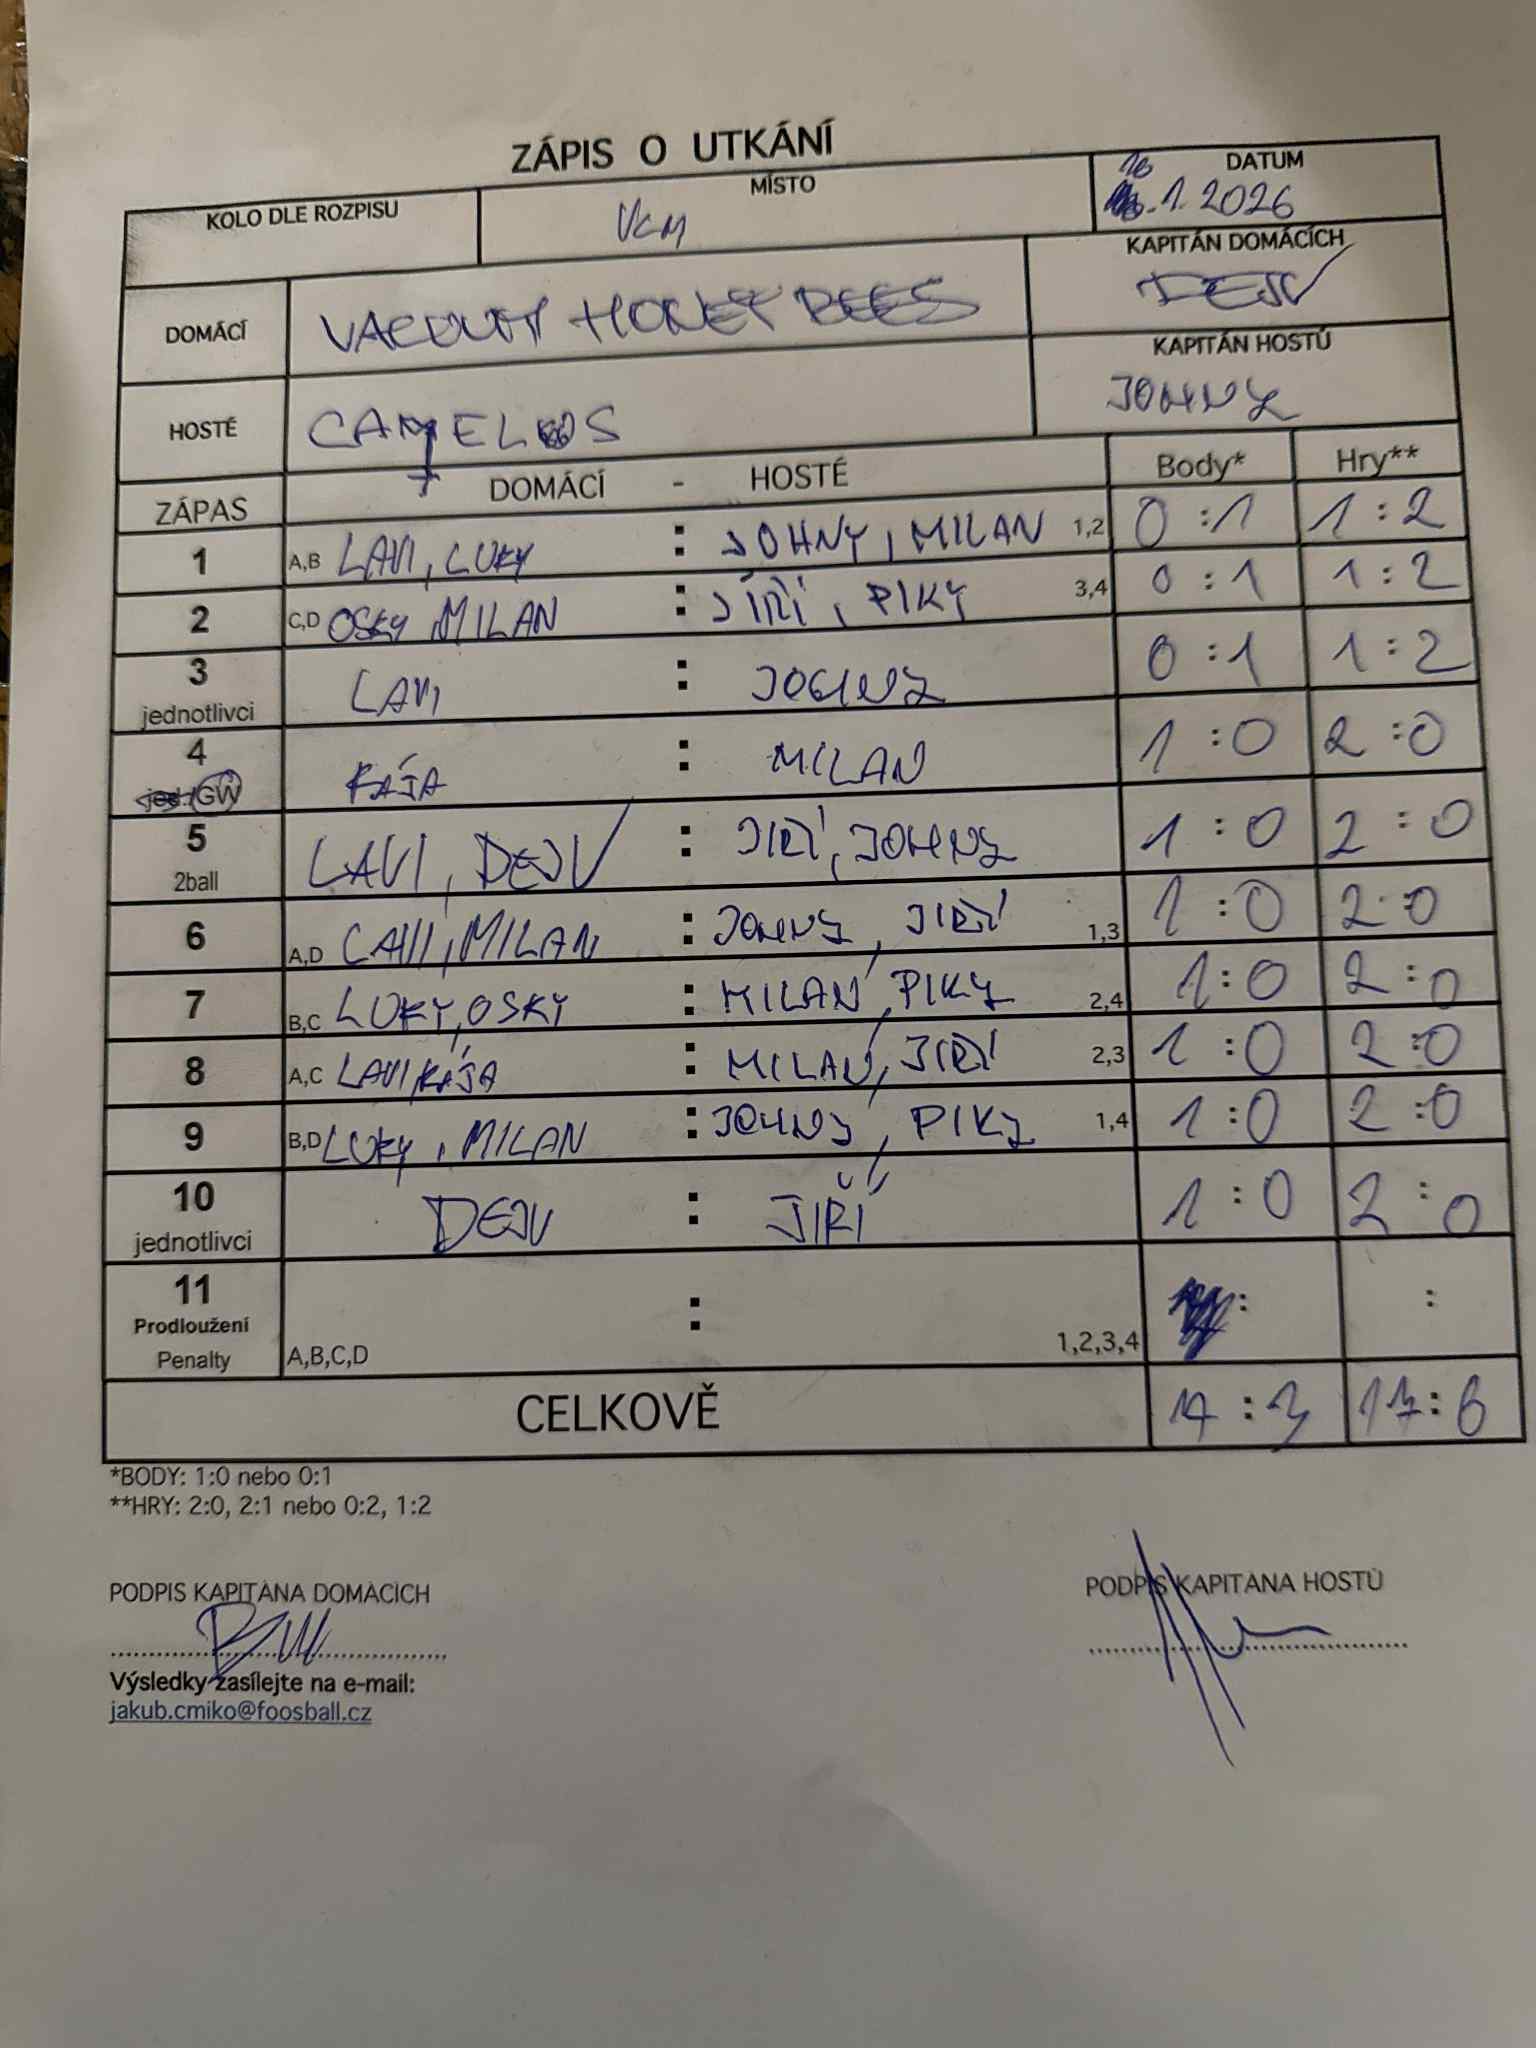 ZÁPIS O UTKÁNÍ
KOLO DLE ROZPISU
MÍSTO
VCM
DATUM
16
.1.2026
DOMÁCÍ
HONEY BEES
KAPITÁN DOMÁCÍCH
DEJV
HOSTÉ
CAMELOS
KAPITÁN HOSTŮ
JOHNY
ZÁPAS DOMÁCÍ - HOSTÉ Body* Hry**
1 A,B LAVI, LUKY : JOHNY, MILAN 1,2 0 : 1 1 : 2
2 C,D OSKY, MILAN : JIŘÍ, PIKY 3,4 0 : 1 1 : 2
3 LAVI : JOHNY 0 : 1 1 : 2
jednotlivci
4 KÁJA : MILAN 1 : 0 2 : 0
jed./GW
5 LAVI, DEJV : JIŘÍ, JOHNY 1 : 0 2 : 0
2ball
6 A,D LAVI, MILAN : JOHNY, JIŘÍ 1,3 1 : 0 2 : 0
7 B,C LUKY, OSKY : MILAN, PIKY 2,4 1 : 0 2 : 0
8 A,C LAVI, KÁJA : MILAN, JIŘÍ 2,3 1 : 0 2 : 0
9 B,D LUKY, MILAN : JOHNY, PIKY 1,4 1 : 0 2 : 0
10 DEJV : JIŘÍ 1 : 0 2 : 0
jednotlivci
11 : : :
Prodloužení
Penalty A,B,C,D 1,2,3,4
CELKOVĚ 7 : 3 17 : 6
*BODY: 1:0 nebo 0:1
**HRY: 2:0, 2:1 nebo 0:2, 1:2
PODPIS KAPITÁNA DOMÁCÍCH
PODPIS KAPITÁNA HOSTŮ
Výsledky zasílejte na e-mail:
jakub.cmiko@foosball.cz